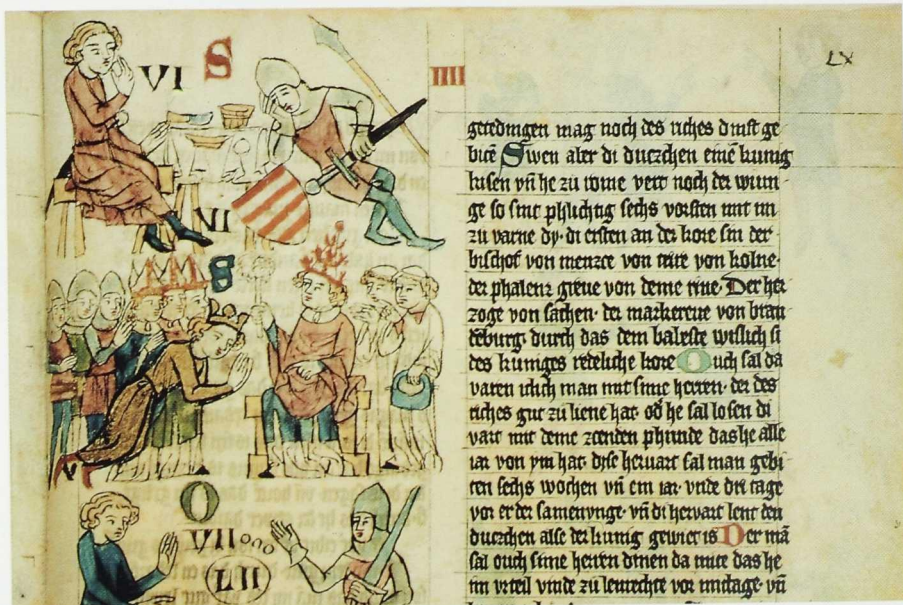 VI S
VI
S
O
VII
LII
IIII
LX
getedingen mag noch des riches dinst ge
bitē Swen aber di duczchen einē kunig
kisen vn̄ he zu rome vert noch der wiun
ge so sint phlichtig sechs vorsten mit im
zu varne dy· di ersten an der kore sin der
bischof von menzce von trire von kolne·
der phalenz greue von deme rine· Der her
zoge von sachsen· der markereue von bran
deburg· durch das dem babeste wislich si
des kuniges redeliche kore Ouch sal da
varen iclich man mit sime herren· der des
riches gut zu liene hat· od he sal losen di
vart mit deme zcenden phunde das he alle
iar von ym hat· dyse hervart sal man gebi
ten sechs wochen vn̄ ein iar· vnde dri tage
vor er der samenunge· vn̄ di hervart lent den
duczschen alse der kunig gewiet is Der mā
sal ouch sime herren dinen da mite das he
im vrteil vinde zu lenrechte vor mittage· vn̄